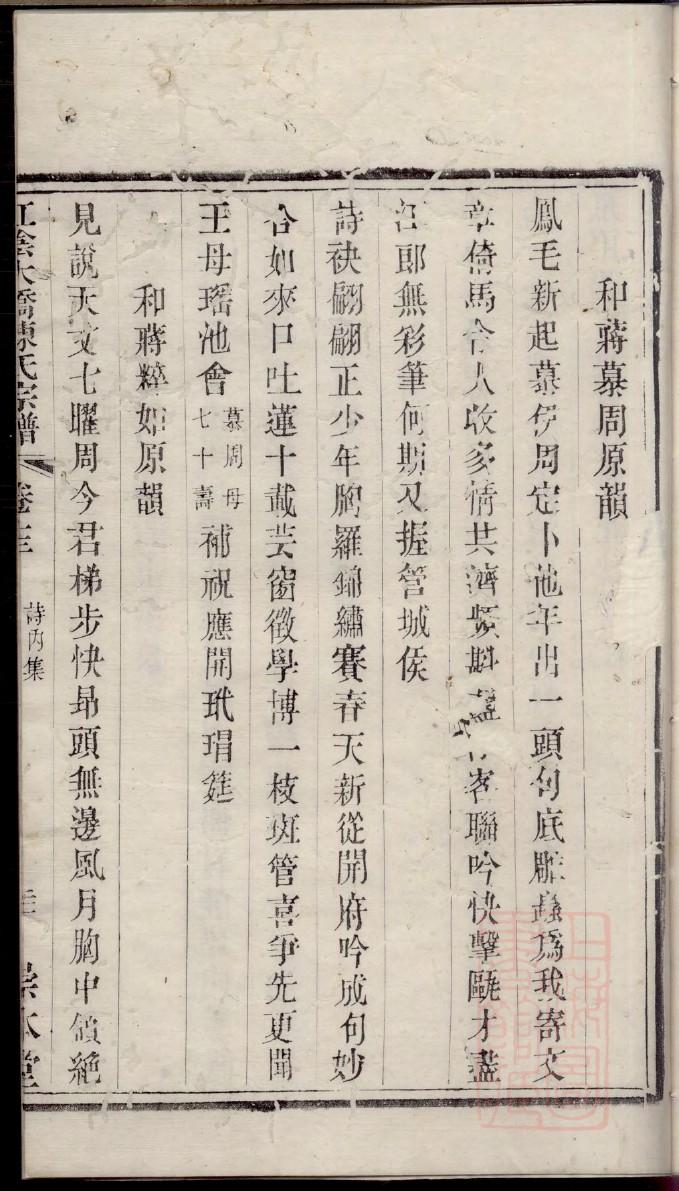 和蔣慕周原韻
鳳毛新起慕伊周定卜他年出一頭句底雕蟲爲我寄文
章倚馬令人收多情共濟頻斟盞客聯吟快擊甌才盡
江郎無彩筆何期又握管城侯
詩袂翩翩正少年胸羅錦繡賽春天新從開府吟成句妙
合如來口吐蓮十載芸窗徵學博一枝斑管喜爭先更聞
王母瑶池會慕周母七十壽補祝應開玳瑁筵
和蔣粹始原韻
見說天文七曜周今君梯步快昂頭無邊風月胸中領絕
江陰大橋陳氏宗譜 卷 詩內集 崇本堂